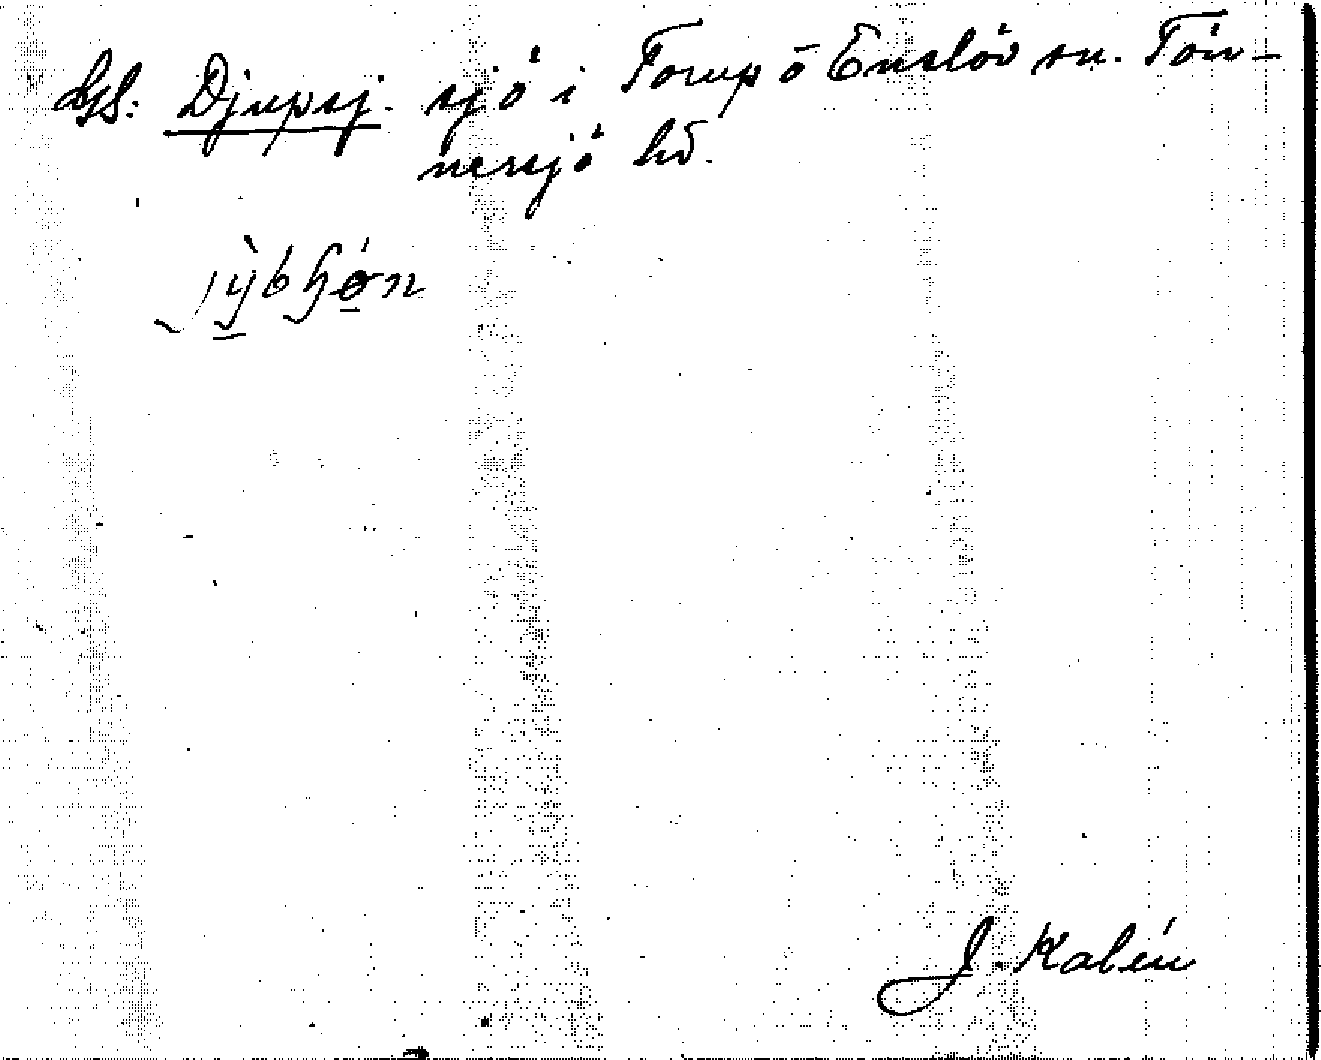 Djupsj. sjö i Torup o Enslöv sn. Tön-
nersjö hd.
J. Kalén